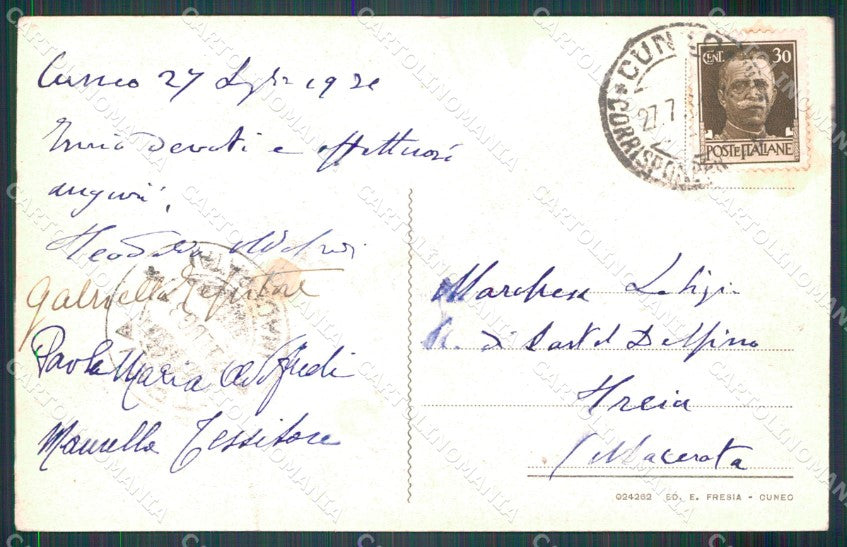 Cuneo 27 Luglio 1931
Invio devoti e affettuosi
auguri,
Teodora
Gabriella Tessitore
Paola Maria
Marcella Tessitore
CUNEO
27.7
CORRISPONDENZE
CENT. 30
POSTE ITALIANE
Marchesa Letizia
R. di Castel Delfino
Treia
(Macerata
024262 ED. E. FRESIA - CUNEO
CARTOLINOMANIA